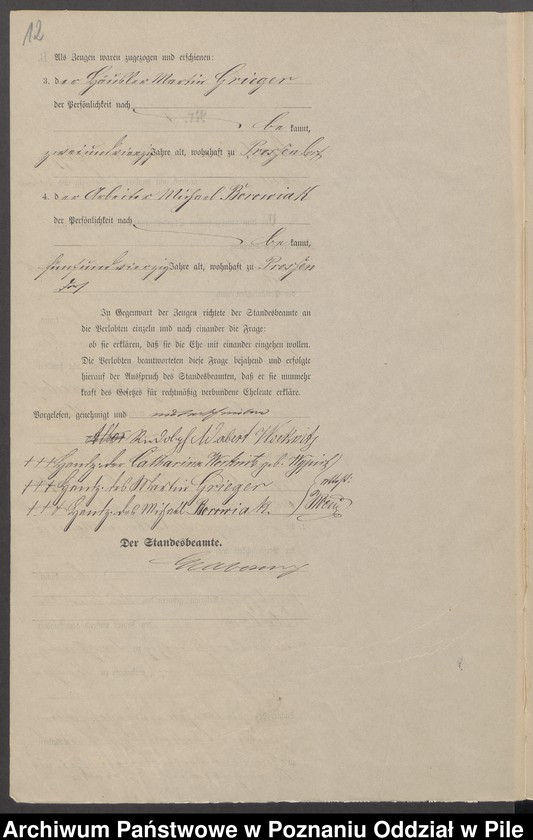 12
Als Zeugen waren zugezogen und erschienen:
3. der Häusler Martin Grieger
der Persönlichkeit nach
be kannt,
zweiundvierzig Jahre alt, wohnhaft zu
4. der Arbeiter Michael Borowiak
der Persönlichkeit nach
be kannt,
fünfundvierzig Jahre alt, wohnhaft zu
In Gegenwart der Zeugen richtete der Standesbeamte an
die Verlobten einzeln und nach einander die Frage:
ob sie erklären, daß sie die Ehe mit einander eingehen wollen.
Die Verlobten beantworteten diese Frage bejahend und erfolgte
hierauf der Ausspruch des Standesbeamten, daß er sie nunmehr
kraft des Gesetzes für rechtmäßig verbundene Eheleute erkläre.
Vorgelesen, genehmigt und unterschrieben
Rudolph Albert
+++ Handz. der Catharina geb.
+++ Handz. des Martin Grieger
+++ Handz. des Michael Borowiak.
Der Standesbeamte.
Archiwum Państwowe w Poznaniu Oddział w Pile